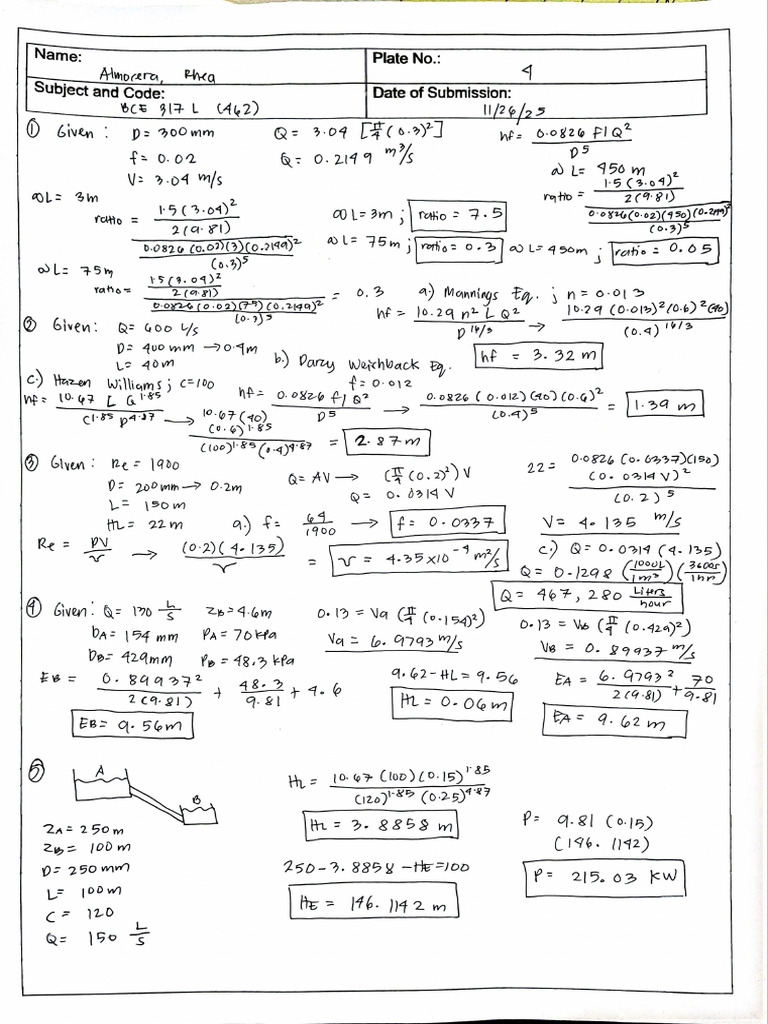 Name: Almocera, Rhea
Plate No.: 4
Subject and Code: BCE 317 L (462)
Date of Submission: 11/26/25
① Given: D= 300 mm
f= 0.02
V= 3.04 m/s
Q= 3.04 [π/4 (0.3)²]
Q= 0.2149 m³/s
hf= 0.0826 f L Q² / D⁵
a) L= 3m
ratio = 1.5(3.04)² / 2(9.81) / 0.0826(0.02)(3)(0.2149)² / (0.3)⁵
a) L= 75m
ratio = 1.5(3.04)² / 2(9.81) / 0.0826(0.02)(75)(0.2149)² / (0.3)⁵ = 0.3
a) L= 450 m
ratio = 1.5(3.04)² / 2(9.81) / 0.0826(0.02)(450)(0.2149)² / (0.3)⁵
a) L=3m ; ratio = 7.5
a) L= 75m ; ratio = 0.3
a) L=450m ; ratio = 0.05
② Given: Q= 600 L/s
D= 400 mm → 0.4m
L= 40m
a.) Mannings Eq. ; n= 0.013
hf= 10.29 n² L Q² / D^16/3 → 10.29 (0.013)²(0.6)²(40) / (0.4)^16/3
hf = 3.32 m
b.) Darcy Weichback Eq.
f= 0.012
hf= 0.0826 f L Q² / D⁵ → 0.0826 (0.012)(40)(0.6)² / (0.4)⁵ = 1.39 m
c.) Hazen Williams ; C=100
hf= 10.67 L Q^1.85 / C^1.85 D^4.87 → 10.67(40)(0.6)^1.85 / (100)^1.85 (0.4)^4.87 = 2.87 m
③ Given: Re = 1900
D= 200mm → 0.2m
L= 150m
HL= 22m
Q= AV → (π/4 (0.2)²) V
Q= 0.0314 V
22= 0.0826(0.0337)(150)(0.0314V)² / (0.2)⁵
V= 4.135 m/s
a.) f= 64/1900 → f= 0.0337
Re = DV/v → (0.2)(4.135)/v = v= 4.35x10⁻⁴ m²/s
c.) Q= 0.0314 (4.135)
Q= 0.1298 (1000L/1m³)(3600s/1hr)
Q= 467, 280 Liters/hour
④ Given: Q= 130 L/s
DA= 154 mm
DB= 429mm
ZB= 4.6m
PA= 70kPa
PB= 48.3 kPa
0.13 = Va (π/4 (0.154)²)
Va = 6.9793 m/s
0.13= VB (π/4 (0.429)²)
VB = 0.89937 m/s
EB = 0.89937² / 2(9.81) + 48.3/9.81 + 4.6
EB= 9.56m
9.62-HL= 9.56
HL= 0.06m
EA= 6.9793²/2(9.81) + 70/9.81
EA = 9.62 m
⑤ A
B
ZA= 250m
ZB= 100m
D= 250 mm
L= 100m
C= 120
Q= 150 L/s
HL= 10.67 (100)(0.15)^1.85 / (120)^1.85 (0.25)^4.87
HL= 3.8858 m
250-3.8858 -HE=100
HE = 146.1142 m
P= 9.81 (0.15)
(146.1142)
P= 215.03 KW